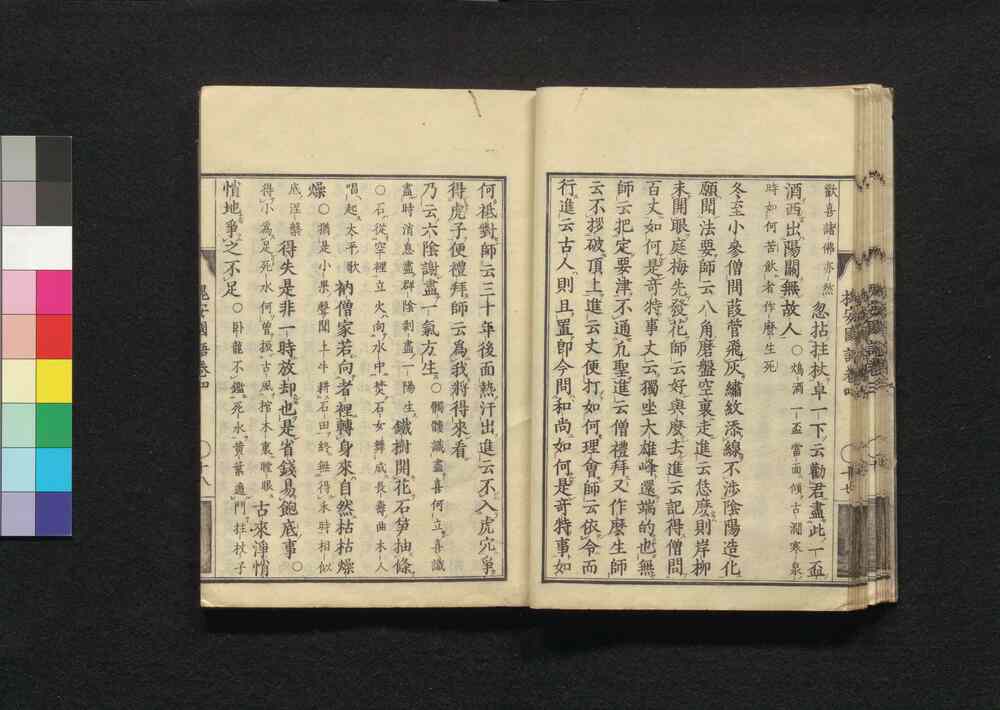 歡喜諸佛亦然 忽拈拄杖卓一下云勸君盡此一盃
酒西出陽關無故人 ○鴆酒一盃當面傾古澗寒泉
時如何苦飲者作麼生死
冬至小參僧問葭管飛灰繡紋添線不涉陰陽造化
願聞法要師云八角磨盤空裏走進云恁麼則岸柳
未開眼庭梅先發花師云好與麼去進云記得僧問
百丈如何是奇特事丈云獨坐大雄峰還端的也無
師云把定要津不通凡聖進云僧禮拜又作麼生師
云不拶破頂上進云丈便打如何理會師云依令而
行進云古人則且置卽今問和尚如何是奇特事如
何祗對師云三十年後面熱汗出進云不入虎穴爭
得虎子便禮拜師云爲我將得來看
乃云六陰謝盡一氣方生 ○髑髏識盡喜何立喜識
盡時消息盡群陰剝盡一陽生 鐵樹開花石笋抽條
○石從空裡立火向水中焚石女舞成長壽曲木人
唱起太平歌 衲僧家若向者裡轉身來自然枯枯燥
燥 ○猶是小果聲聞上牛耕石田終無得永時相似
底涅槃 得失是非一時放却也是省錢易飽底事 ○
得小爲足死水何曾振古風棺木裏瞠眼 古來淨悄
悄地爭之不足 ○臥龍不鑑死水黃葉適門拄杖子
槐安國語卷四